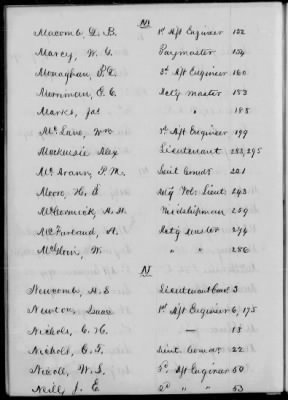 M
Macomb, D. B. 1st Asst Engineer 152
Marcy, W. G. Paymaster 154
Monaghan, 3d Asst Engineer 160
Merriman, E. C. Actg Master 183
Marks, Jas " 185
McLane, Wm 3d Asst Engineer 199
Mackenzie Alex Lieutenant 283,295
McCrann, Lieut Comdr 221
Moore, H. Actg Vol: Lieut 243
McCormick, A. H. Midshipman 259
McFarland, A. Actg 274
W. " " 286
N
Newcomb, H. S. Lieutenant Com. 3
Newton, Isaac 1st Asst Engineer 6, 175
Nichols, E. H. — 15
Nichols, Lieut. Comdr 22
Nicoll, W. L. 3d Asst Engineer 50
Neill, J. E. 2d " " 53